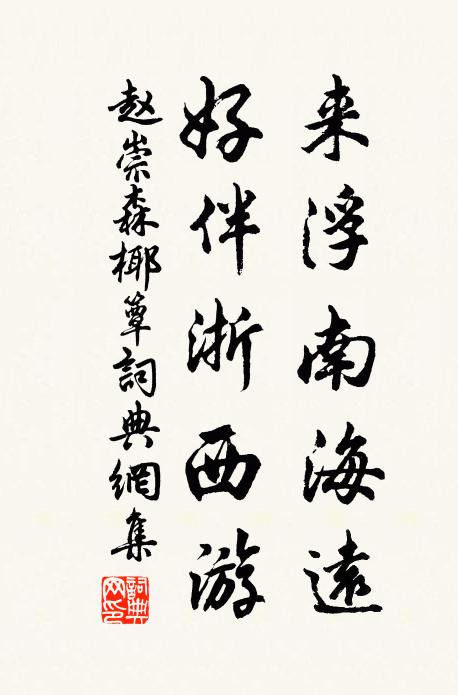 来浮南海遠
好伴浙西游
赵崇森椰簟詞典網集
詞典网印